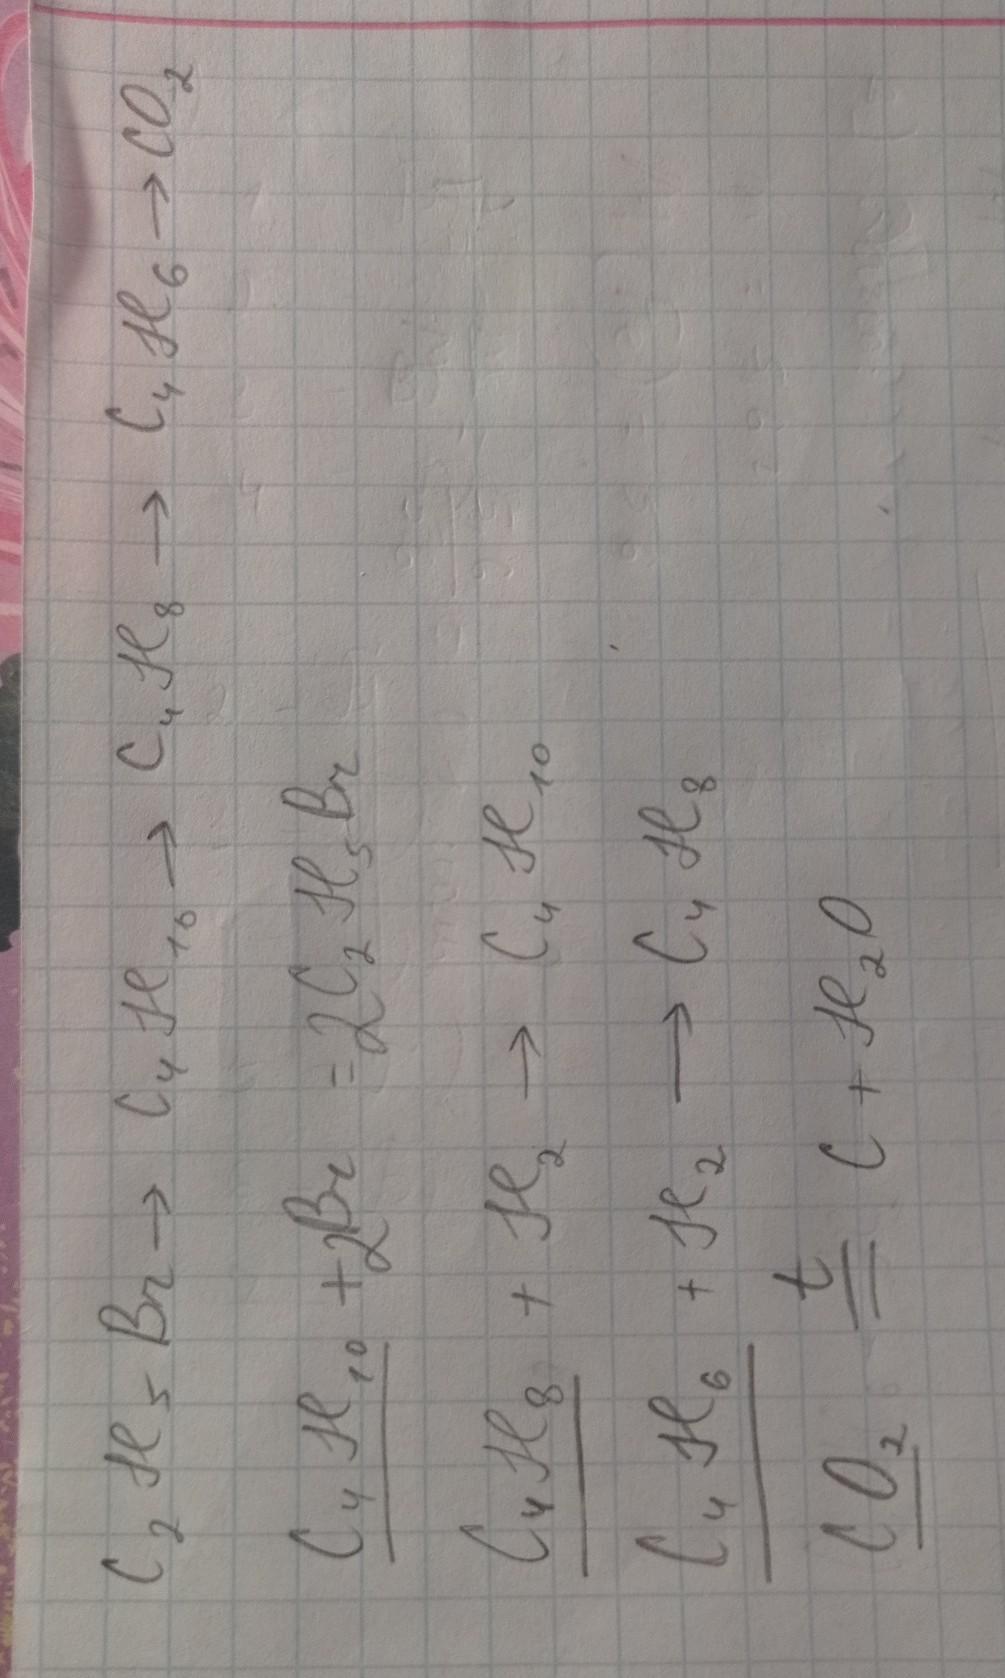 C₂H₅Br → C₄H₁₀ → C₄H₈ → C₄H₆ → CO₂
C₄H₁₀ + 2Br = 2C₂H₅Br
C₄H₈ + H₂ → C₄H₁₀
C₄H₆ + H₂ → C₄H₈
CO₂ t= C + H₂O